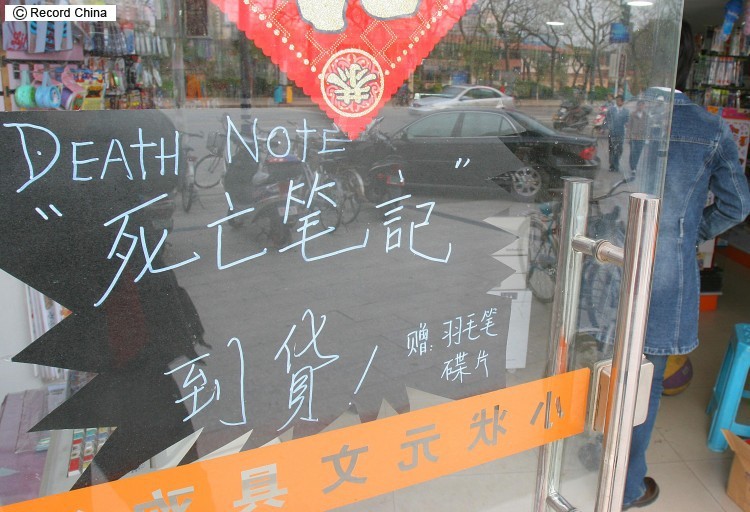 © Record China
DEATH NOTE
“死亡笔記”
到貨！
赠：羽毛笔
碟片
小状元文具店